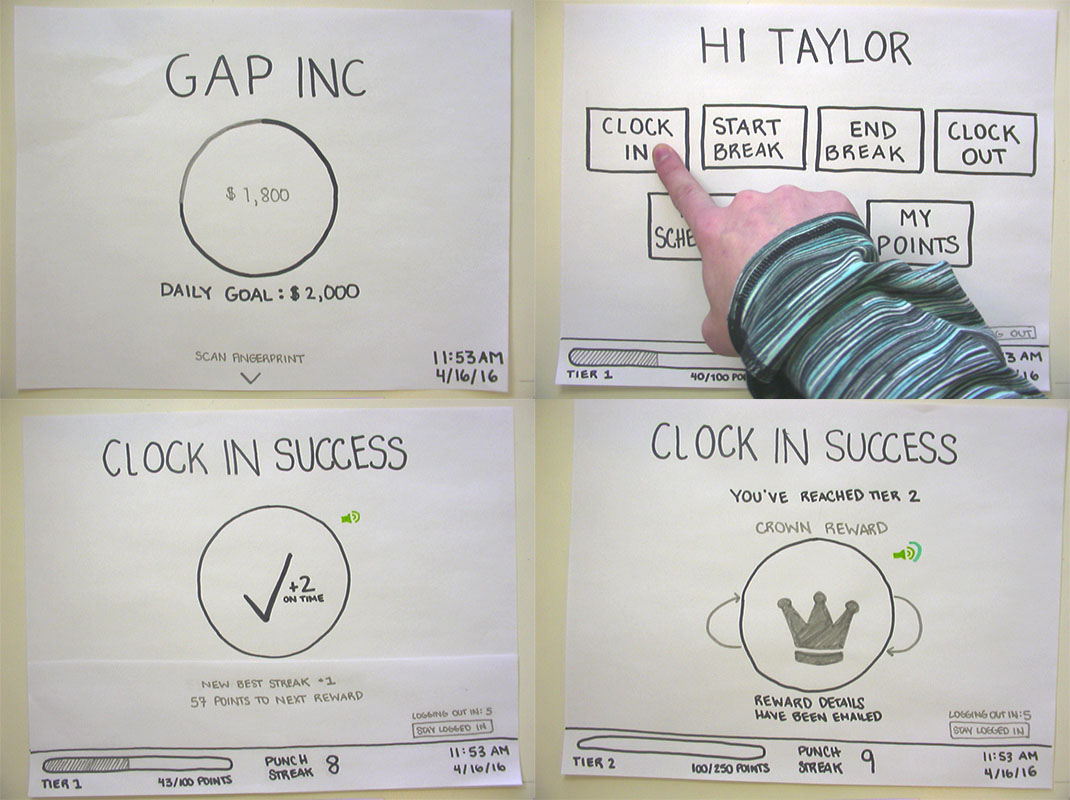 GAP INC
$1,800
DAILY GOAL: $2,000
SCAN FINGERPRINT
11:53 AM
4/16/16
HI TAYLOR
CLOCK IN
START BREAK
END BREAK
CLOCK OUT
MY POINTS
TIER 1
40/100
CLOCK IN SUCCESS
+2
ON TIME
NEW BEST STREAK +1
57 POINTS TO NEXT REWARD
LOGGING OUT IN: 5
STAY LOGGED IN
TIER 1
43/100 POINTS
PUNCH STREAK 8
11:53 AM
4/16/16
CLOCK IN SUCCESS
YOU'VE REACHED TIER 2
CROWN REWARD
REWARD DETAILS
HAVE BEEN EMAILED
LOGGING OUT IN: 5
STAY LOGGED IN
TIER 2
100/250 POINTS
PUNCH STREAK 9
11:53 AM
4/16/16